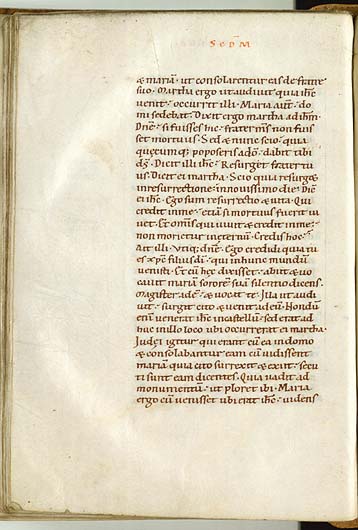 SEDM
& mariā· ut consolarentur eas de fratre
suo· Martha ergo ut audivit quia ihc̄
venit· occurrit illi· Maria aut̄· do
mi sedebat· Dixit ergo martha ad ihm̄·
Dne· si fuisses hic· frater m̄s non fuis
set mortuus· Sed & nunc scio· quia
quecumq; poposceris a dō· dabit tibi
ds̄· Dicit illi ihc̄· Resurget frater tu
us· Dicit ei martha· Scio quia resurg&
in resurrectione· in novissimo die· Dic̄
ei ihc̄· Ego sum resurrectio & vita· Qui
credit in me· etiā si mortuus fuerit vi
vet· Et omis qui vivit & credit in me·
non morietur in eternū· Credis hoc·
Ait illi· Utiq; dnē· Ego credidi quia tu
es xp̄c filius dī· qui in hunc mundū
venisti· Et cū hęc dixisset· abiit & vo
cavit mariā sororē suā silentio dicens·
Magister adē· & vocat te· Illa ut audi
vit· surgit cito & venit ad eū· Nondū
enī venerat ihc̄ in castellū· sed erat ad
huc in illo loco ubi occurrerat ei martha·
Judei igitur qui erant cū ea in domo
& consolabantur eam cū vidissent
mariā quia cito surrexit & exiit· secu
ti sunt eam dicentes· Quia vadit ad
monumentū· ut ploret ibi· Maria
ergo cū venisset ubi erat ihc̄· videns